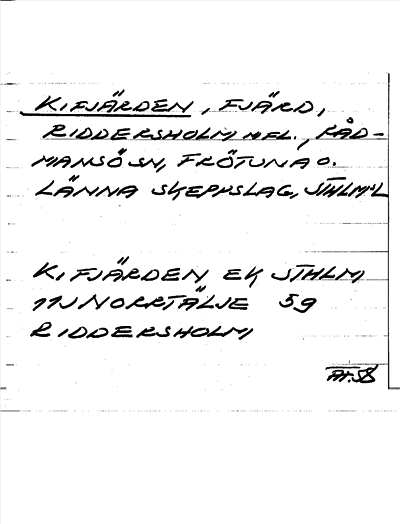 KIFJÄRDEN, FJÄRD,
RIDDERSHOLM M FL., RÅD-
MANSÖ SN, FRÖTUNA O.
LÄNNA SKEPPSLAG, STHLM:L
KIFJÄRDEN EK STHLM
11J NORRTÄLJE 59
RIDDERSHOLM